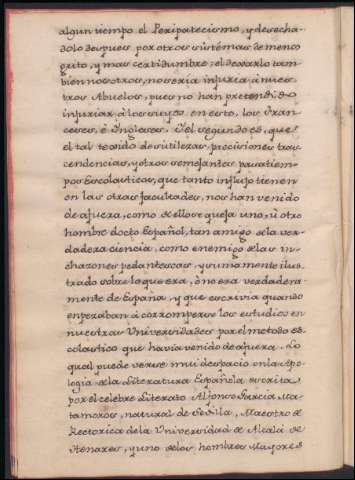 algun tiempo el Peripatecismo, y desecha-
dolo despues por otros sistemas de menos
grito, y mas certidumbre; el dexarlo tam-
bien nosotros, no seria injuria à nues-
tros Abuelos, pues no han pretendido
injuriar à los suyos en esto, los Fran-
ceses, è Yngleses. Y el segundo es, que
el tal texido de sutilezas, precisiones, tras-
cendencias, y otros semejantes pasatiem-
pos Escolasticos, que tanto influjo tienen
en las otras facultades, nos han venido
de afuera, como de ellos queja uno, ù otro
hombre docto Español, tan amigo de la ver-
dadera ciencia, como enemigo de las in-
chazones pedantescas, y sumamente ilus-
trado sobre lo que era, ò no era verdadera
mente de España, y que escrivia quando
enpezaban à corromperse los estudios en
nuestras Universidades por el metodo es-
colastico que havia venido de afuera. Lo
qual puede verse mui despacio en la Apo-
logia de la Literatura Española escrita
por el celebre Literato Alfonso Garcia Ma-
tamoros, natural de Sevilla, Maestro de
Rectorica de la Universidad de Alcalà de
Henares, y uno de los hombres Mayores